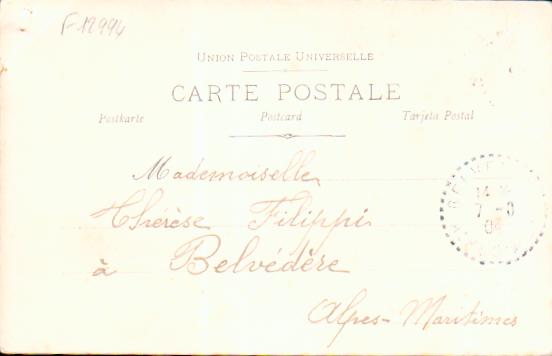 F12994
UNION POSTALE UNIVERSELLE
CARTE POSTALE
Postkarte Postcard Tarjeta Postal
Mademoiselle
Thérèse Filippi
à Belvédère
Alpes-Maritimes
04